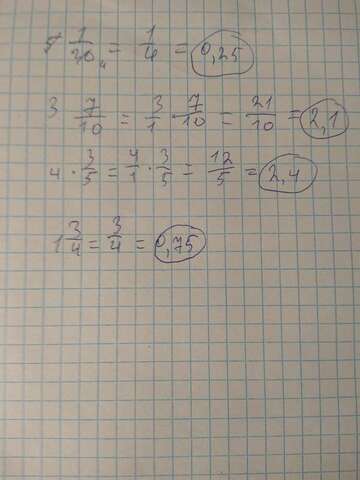 5 1/20 4 = 1/4 = 0,25
3 7/10 = 3/1 · 7/10 = 21/10 = 2,1
4 · 3/5 = 4/1 · 3/5 = 12/5 = 2,4
1 3/4 = 3/4 = 0,75